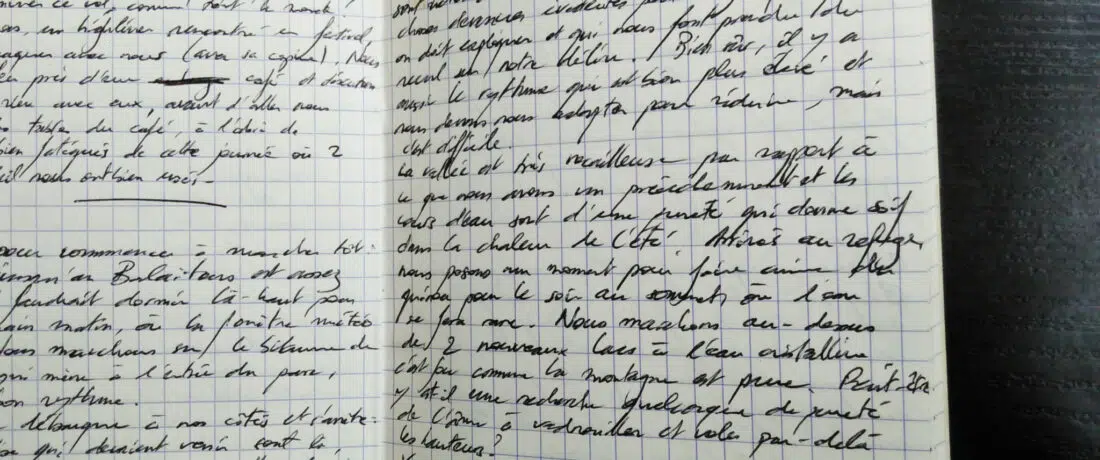 ce vol, comme tout le monde
rencontre en festival
avec nous (avec sa copine). Nous
près d'eux café et discution
avec eux, avant d'aller nous
tables du café, à l'abri de
bien fatigués de cette journée où 2
nous ont bien usés.
pour commencer à marcher tôt.
Balaïtous est assez
faudrait dormir là-haut pour
matin, où la fenêtre météo
marchons sur le bitume de
qui mène à l'entrée du parc,
rythme.
débarque à nos côtés et s'arrête.
qui devaient venir sont là,
choses devenues évidentes
on doit expliquer et qui nous font prendre du
recul sur notre délire. Bien sûr, il y a
aussi le rythme qui est bien plus élevé et
nous devons nous adapter pour réduire, mais
c'est difficile.
La vallée est très rocailleuse par rapport à
ce que nous avons vu précédemment et les
cours d'eau sont d'une pureté qui donne soif
dans la chaleur de l'été. Arrivés au refuge,
nous posons un moment pour faire cuire du
quinoa pour le soir au sommet, où l'eau
se fera rare. Nous marchons au-dessus
de 2 nouveaux lacs à l'eau cristalline
c'est fou comme la montagne est pure. Peut-être
y a-t-il une recherche quelconque de pureté
de l'âme à vadrouiller et voler par-delà
les hauteurs?